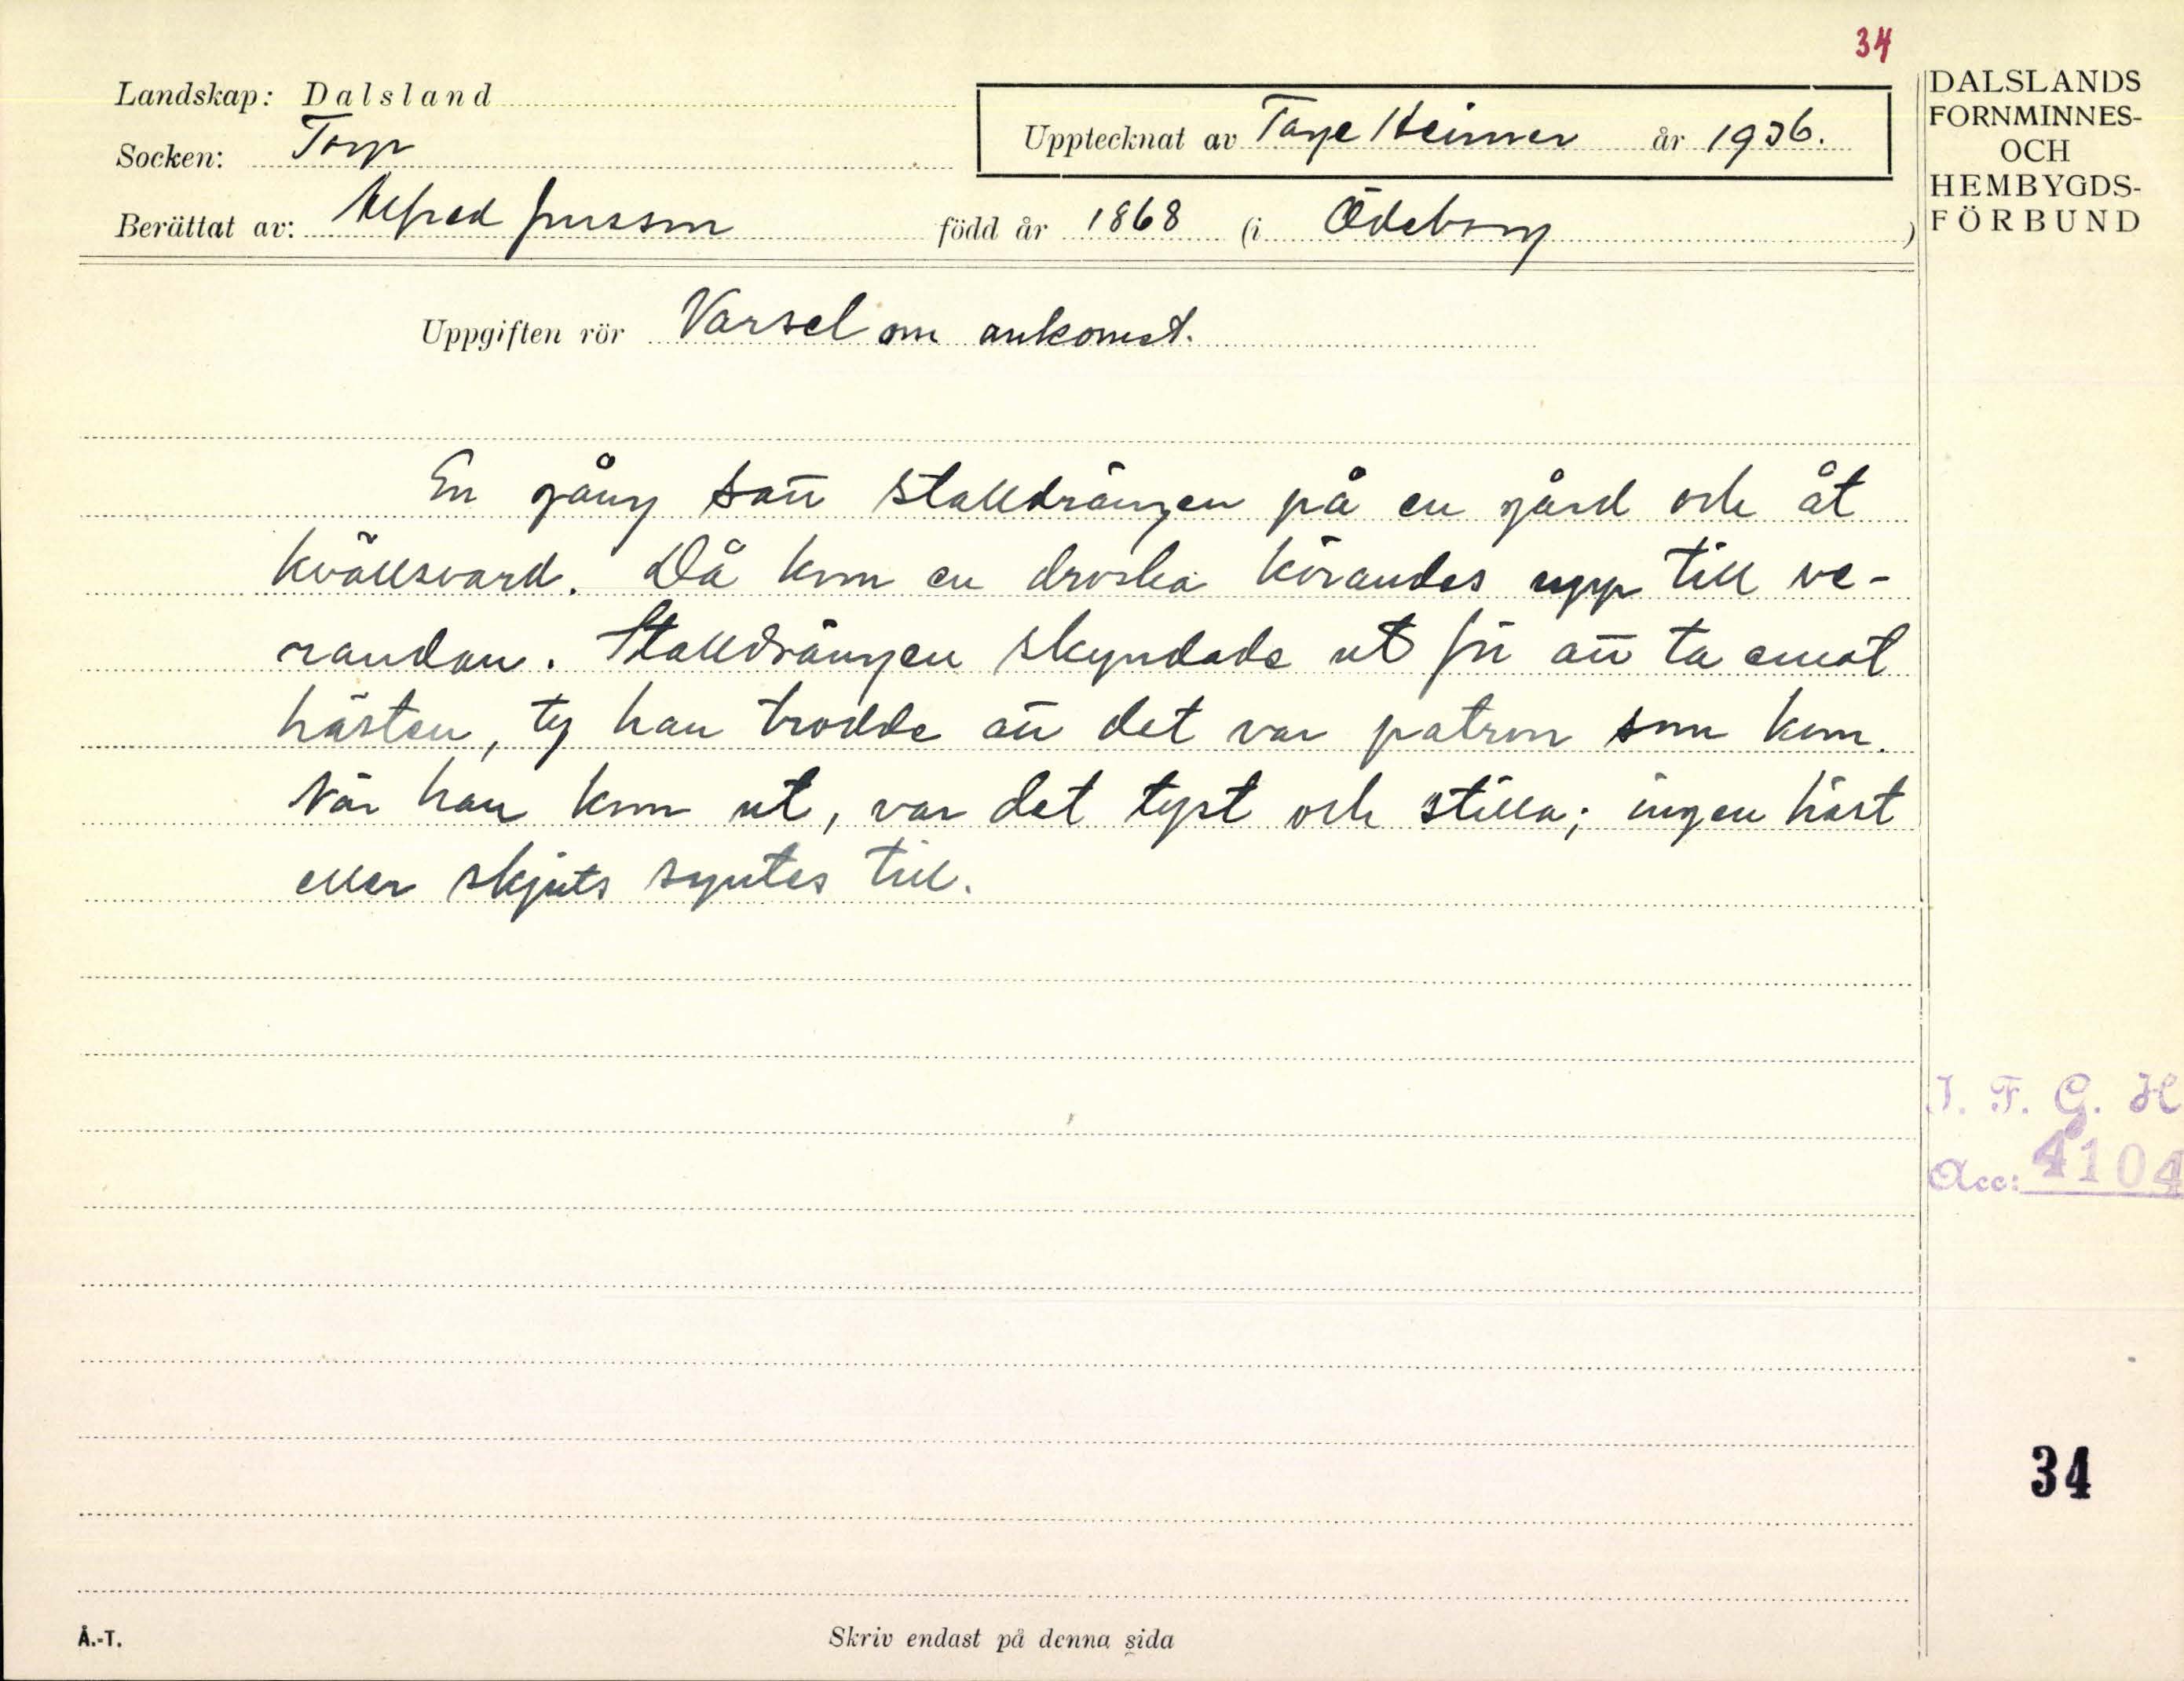 34
Landskap: Dalsland
Socken: Torp
Upptecknat av Tage Heimer år 1936.
Berättat av: Alfred Jonsson född år 1868 (i Ödeborg )
DALSLANDS
FORNMINNES-
OCH
HEMBYGDS-
FÖRBUND
Uppgiften rör Varsel om ankomst.
En gång satt stalldrängen på en gård och åt
kvällsvard. Då kom en droska körandes upp till ve-
randan. Stalldrängen skyndade ut för att ta emot
hästen, ty han trodde att det var patron som kom.
När han kom ut, var det tyst och stilla; ingen häst
eller skjuts syntes till.
I. F. G. H
Acc: 4104
34
Å.-T.
Skriv endast på denna sida